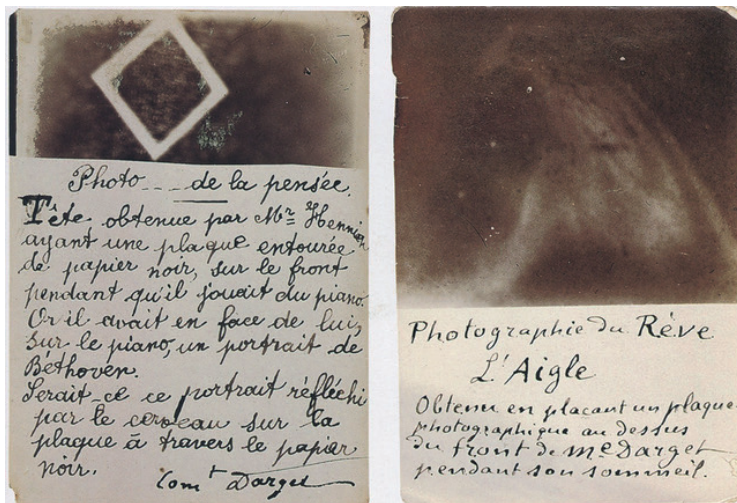 Photo - - - de la pensée.
Tête obtenue par Mr Hennier
ayant une plaque entourée
de papier noir, sur le front
pendant qu'il jouait du piano.
Or il avait en face de lui,
sur le piano, un portrait de
Béthoven.
Serait-ce ce portrait réfléchi
par le cerveau sur la
plaque à travers le papier
noir.
Comt Darget
Photographie du Rêve
L'Aigle
Obtenu en plaçant un plaque
photographique au dessus
du front de Me Darget
pendant son sommeil.